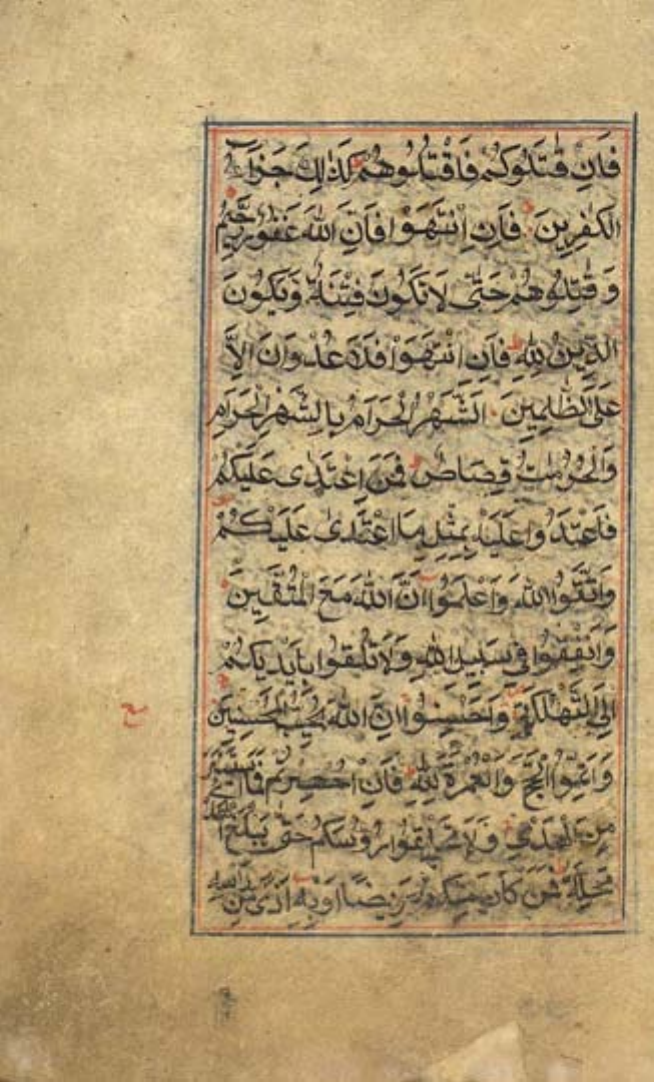 فَاِنْ قٰتَلُوكُمْ فَاقْتُلُوهُمْ كَذٰلِكَ جَزَآءُ
الْكٰفِرِينَ فَاِنِ انْتَهَوْا فَاِنَّ اللهَ غَفُورٌ رَحِيمٌ
وَقٰتِلُوهُمْ حَتّٰى لَا تَكُونَ فِتْنَةٌ وَيَكُونَ
الدِّينُ لِلّٰهِ فَاِنِ انْتَهَوْا فَلَا عُدْوَانَ اِلَّا
عَلَى الظّٰلِمِينَ اَلشَّهْرُ الْحَرَامُ بِالشَّهْرِ الْحَرَامِ
وَالْحُرُمٰتُ قِصَاصٌ فَمَنِ اعْتَدٰى عَلَيْكُمْ
فَاعْتَدُوا عَلَيْهِ بِمِثْلِ مَا اعْتَدٰى عَلَيْكُمْ
وَاتَّقُوا اللهَ وَاعْلَمُوا اَنَّ اللهَ مَعَ الْمُتَّقِينَ
وَاَنْفِقُوا فِي سَبِيلِ اللهِ وَلَا تُلْقُوا بِاَيْدِيكُمْ
اِلَى التَّهْلُكَةِ وَاَحْسِنُوا اِنَّ اللهَ يُحِبُّ الْمُحْسِنِينَ
وَاَتِمُّوا الْحَجَّ وَالْعُمْرَةَ لِلّٰهِ فَاِنْ اُحْصِرْتُمْ فَمَا اسْتَيْسَرَ
مِنَ الْهَدْيِ وَلَا تَحْلِقُوا رُؤُسَكُمْ حَتّٰى يَبْلُغَ الْهَدْيُ
مَحِلَّهُ فَمَنْ كَانَ مِنْكُمْ مَرِيضًا اَوْ بِهِ اَذًى مِنْ رَأْسِهِ